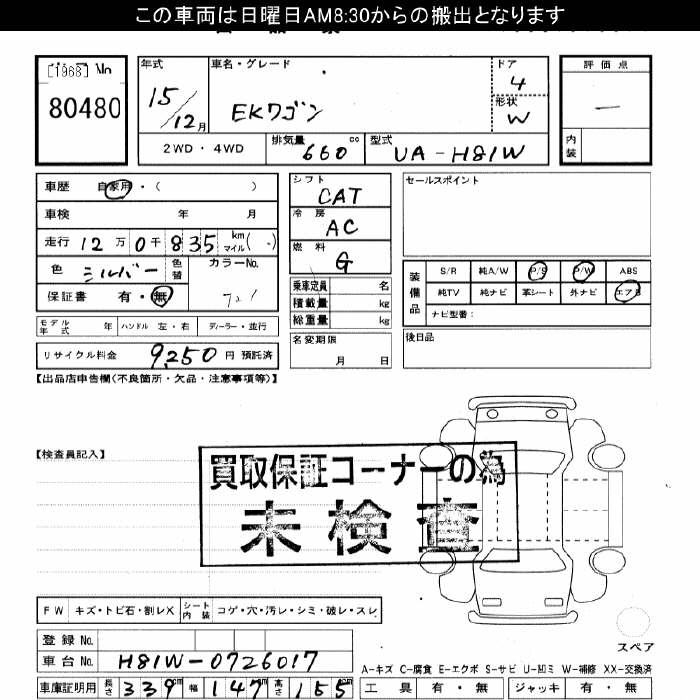 この車両は日曜日AM8:30からの搬出となります
[1968] No
80480
年式
15/12月
車名・グレード
EKワゴン
ドア
4
形状
W
評価点
―
内装
2WD・4WD
排気量 660 cc
型式 UA-H81W
車歴 自家用・( )
車検 年 月
走行 12万0千835 km マイル ( )
色 シルバー 色替
カラーNo.
保証書 有・無
モデル年式 年 ハンドル 左・右 ディーラー・並行
リサイクル料金 9,250 円 預託済
シフト
CAT
冷房
AC
燃料
G
乗車定員 名
積載量 kg
総重量 kg
名変期限
月 日
セールスポイント
装備品
S/R 純A/W P/S P/W ABS
純TV 純ナビ 革シート 外ナビ エアB
ナビ型番:
後日品
【出品店申告欄(不良箇所・欠品・注意事項等)】
【検査員記入】
買取保証コーナーの為
未検査
FW キズ・トビ石・割レX シート内装 コゲ・穴・汚レ・シミ・破レ・スレ
登録No.
車台No. H81W-0726017
車庫証明用 長さ 339cm 幅 147cm 高さ 155cm
スペア
A-キズ C-腐食 E-エクボ S-サビ U-凹ミ W-補修 XX-交換済
工具 有・無 ジャッキ 有・無